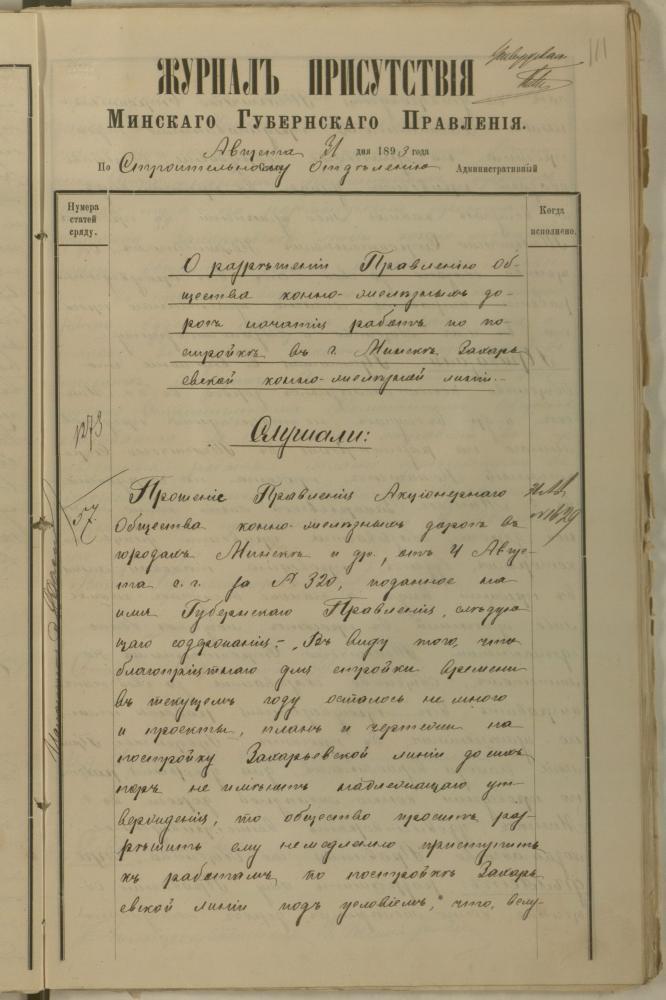 111
ЖУРНАЛЪ ПРИСУТСТВІЯ
МИНСКАГО ГУБЕРНСКАГО ПРАВЛЕНІЯ.
Августа 31 дня 1893 года
По Строительному Отдѣленію Административный
Нумера статей сряду.
Когда исполнено.
О разрѣшеніи Правленію об-
щества конно-желѣзныхъ до-
рогъ начатія работъ по по-
стройкѣ въ г. Минскѣ Захарь
евской конно-желѣзной линіи.
1273
Слушали:
57
Прошеніе Правленія Акціонернаго
Общества конно-желѣзныхъ дорогъ въ
городахъ Минскѣ и др., отъ 4 Авгус-
та с. г. за № 320, поданное на
имя Губернскаго Правленія, слѣдую
щаго содержанія: „Въ виду того, что
благопріятнаго для стройки времени
въ текущемъ году осталось не много
и проекты, планъ и чертежи на
постройку Захарьевской линіи до сихъ
поръ не имѣютъ надлежащаго ут
вержденія, то общество проситъ раз-
рѣшить ему немедленно приступить
къ работамъ по постройкѣ Захарь
евской линіи подъ условіемъ, что, всту-
№ 1629